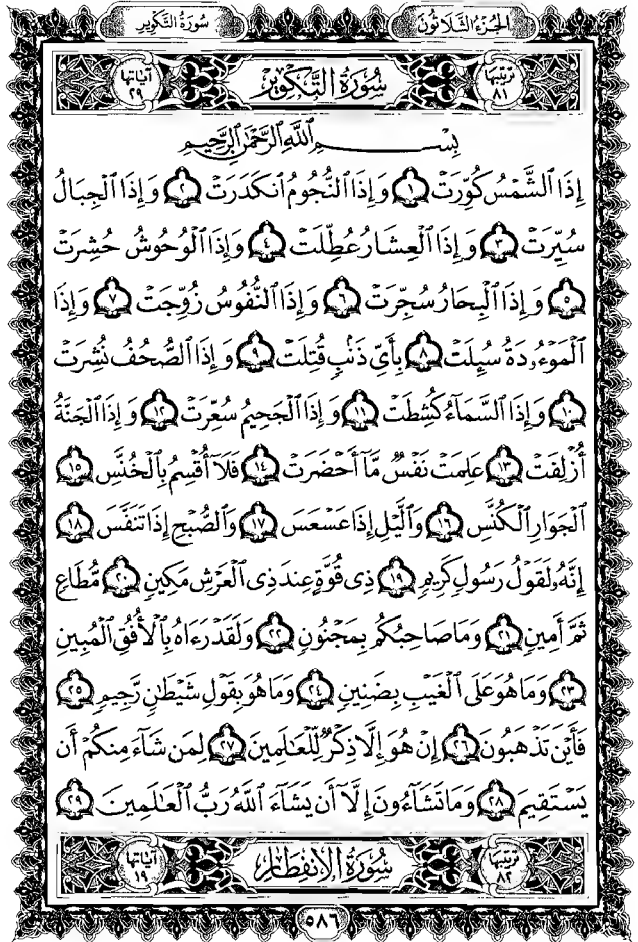 الجزء الثلاثون سورة التكوير
ترتيبها ٨١ سورة التكوير آياتها ٢٩
بِسْمِ ٱللَّهِ ٱلرَّحْمَٰنِ ٱلرَّحِيمِ
إِذَا ٱلشَّمْسُ كُوِّرَتْ ١ وَإِذَا ٱلنُّجُومُ ٱنكَدَرَتْ ٢ وَإِذَا ٱلْجِبَالُ
سُيِّرَتْ ٣ وَإِذَا ٱلْعِشَارُ عُطِّلَتْ ٤ وَإِذَا ٱلْوُحُوشُ حُشِرَتْ
٥ وَإِذَا ٱلْبِحَارُ سُجِّرَتْ ٦ وَإِذَا ٱلنُّفُوسُ زُوِّجَتْ ٧ وَإِذَا
ٱلْمَوْءُۥدَةُ سُئِلَتْ ٨ بِأَىِّ ذَنۢبٍ قُتِلَتْ ٩ وَإِذَا ٱلصُّحُفُ نُشِرَتْ
١٠ وَإِذَا ٱلسَّمَآءُ كُشِطَتْ ١١ وَإِذَا ٱلْجَحِيمُ سُعِّرَتْ ١٢ وَإِذَا ٱلْجَنَّةُ
أُزْلِفَتْ ١٣ عَلِمَتْ نَفْسٌ مَّآ أَحْضَرَتْ ١٤ فَلَآ أُقْسِمُ بِٱلْخُنَّسِ ١٥
ٱلْجَوَارِ ٱلْكُنَّسِ ١٦ وَٱلَّيْلِ إِذَا عَسْعَسَ ١٧ وَٱلصُّبْحِ إِذَا تَنَفَّسَ ١٨
إِنَّهُۥ لَقَوْلُ رَسُولٍ كَرِيمٍ ١٩ ذِى قُوَّةٍ عِندَ ذِى ٱلْعَرْشِ مَكِينٍ ٢٠ مُّطَاعٍ
ثَمَّ أَمِينٍ ٢١ وَمَا صَاحِبُكُم بِمَجْنُونٍ ٢٢ وَلَقَدْ رَءَاهُ بِٱلْأُفُقِ ٱلْمُبِينِ
٢٣ وَمَا هُوَ عَلَى ٱلْغَيْبِ بِضَنِينٍ ٢٤ وَمَا هُوَ بِقَوْلِ شَيْطَٰنٍ رَّجِيمٍ ٢٥
فَأَيْنَ تَذْهَبُونَ ٢٦ إِنْ هُوَ إِلَّا ذِكْرٌ لِّلْعَٰلَمِينَ ٢٧ لِمَن شَآءَ مِنكُمْ أَن
يَسْتَقِيمَ ٢٨ وَمَا تَشَآءُونَ إِلَّآ أَن يَشَآءَ ٱللَّهُ رَبُّ ٱلْعَٰلَمِينَ ٢٩
ترتيبها ٨٢ سورة الانفطار آياتها ١٩
٥٨٦